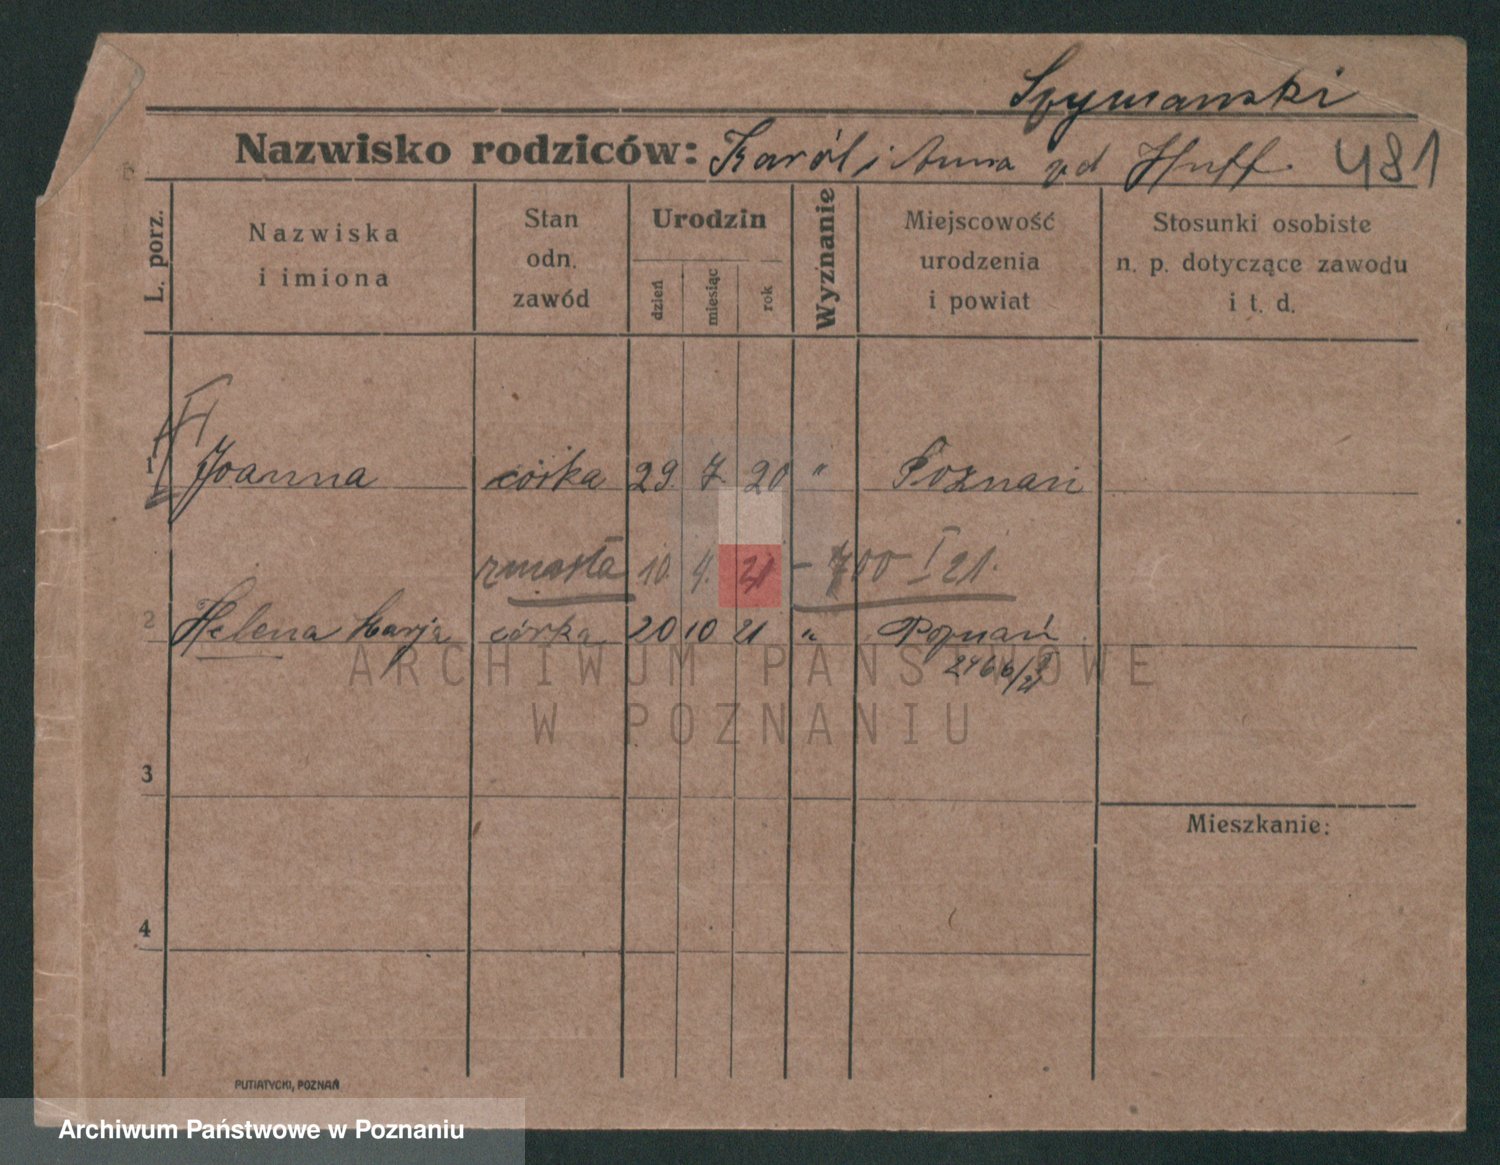 Szymanski
Nazwisko rodziców: Karól i Anna zd Huff. 481
L. porz.
Nazwiska i imiona
Stan odn. zawód
Urodzin
dzień miesiąc rok
Wyznanie
Miejscowość urodzenia i powiat
Stosunki osobiste n. p. dotyczące zawodu i t. d.
1 Joanna córka 29. 7. 20 " Poznań
zmarła 10. 4. 21 – 700 I 21.
2 Helena Marja córka 20 10 21 " Poznań
2466/I 21
ARCHIWUM PAŃSTWOWE
W POZNANIU
3
Mieszkanie:
4
PUTIATYCKI, POZNAŃ
Archiwum Państwowe w Poznaniu